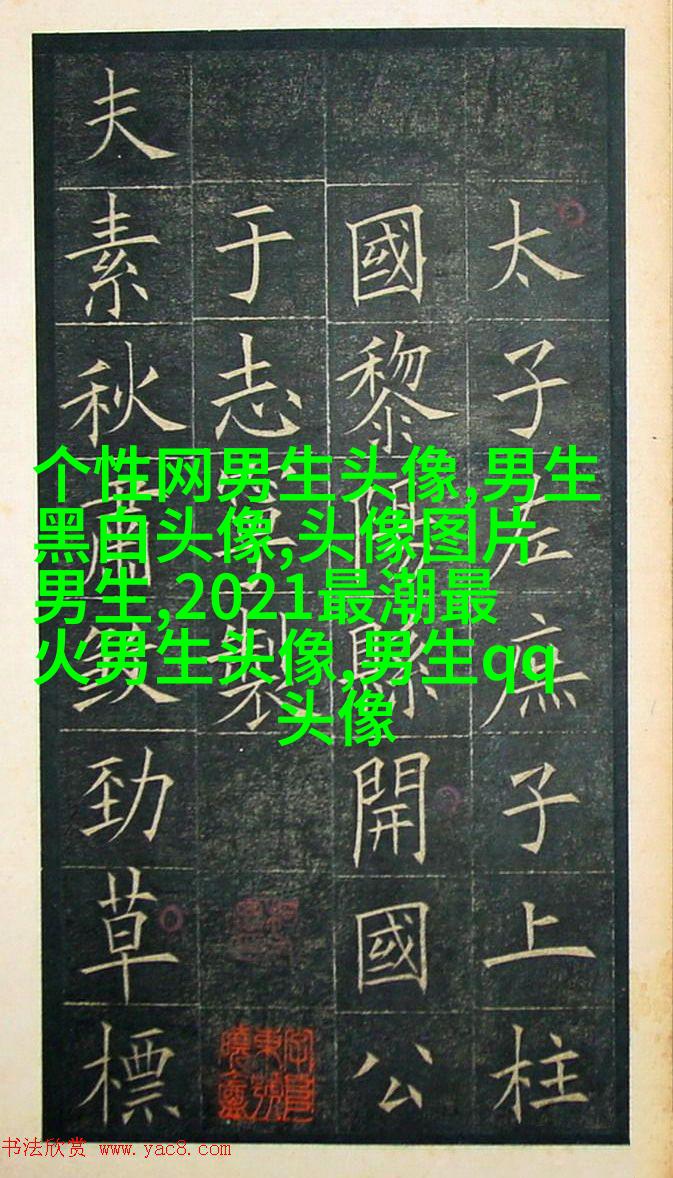 太子左庶子上柱
國黎陽縣開國公
于志寧製
夫素秋肅煞勁草標
个性网男生头像,男生
黑白头像,头像图片
男生,2021最潮最
火男生头像,男生qq
头像
书法欣赏 www.yac8.com